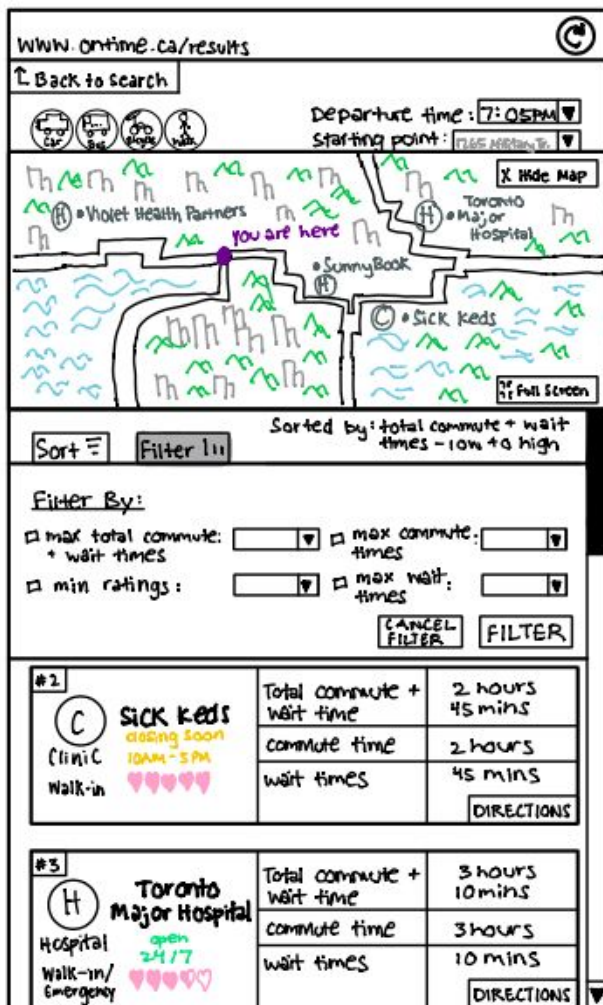 www.ontime.ca/results
Back to search
Departure time: 7:05PM
Starting point: 1265 Military Tr.
Car Bus Bicycle Walk
X Hide Map
H Violet Health Partners
H Toronto Major Hospital
You are here
SunnyBook
H
C Sick Keds
Full Screen
Sort Filter
Sorted by: total commute + wait
times - low to high
Filter By:
max total commute
+ wait times
max commute
times
min ratings:
max wait
times
CANCEL
FILTER
FILTER
#2
C
Sick Keds
closing soon
10AM - 5PM
Clinic
Walk-in
Total commute +
wait time
2 hours
45 mins
commute time
2 hours
wait times
45 mins
DIRECTIONS
#3
H
Toronto
Major Hospital
open
24/7
Hospital
Walk-in/
Emergency
Total commute +
wait time
3 hours
10 mins
commute time
3 hours
wait times
10 mins
DIRECTIONS